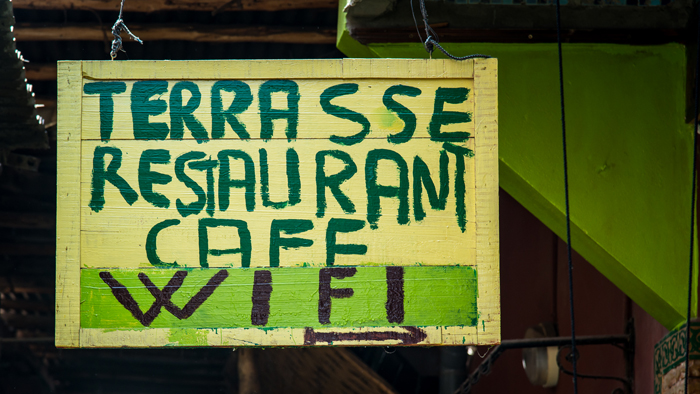 TERRASSE
RESTAURANT
CAFE
WIFI